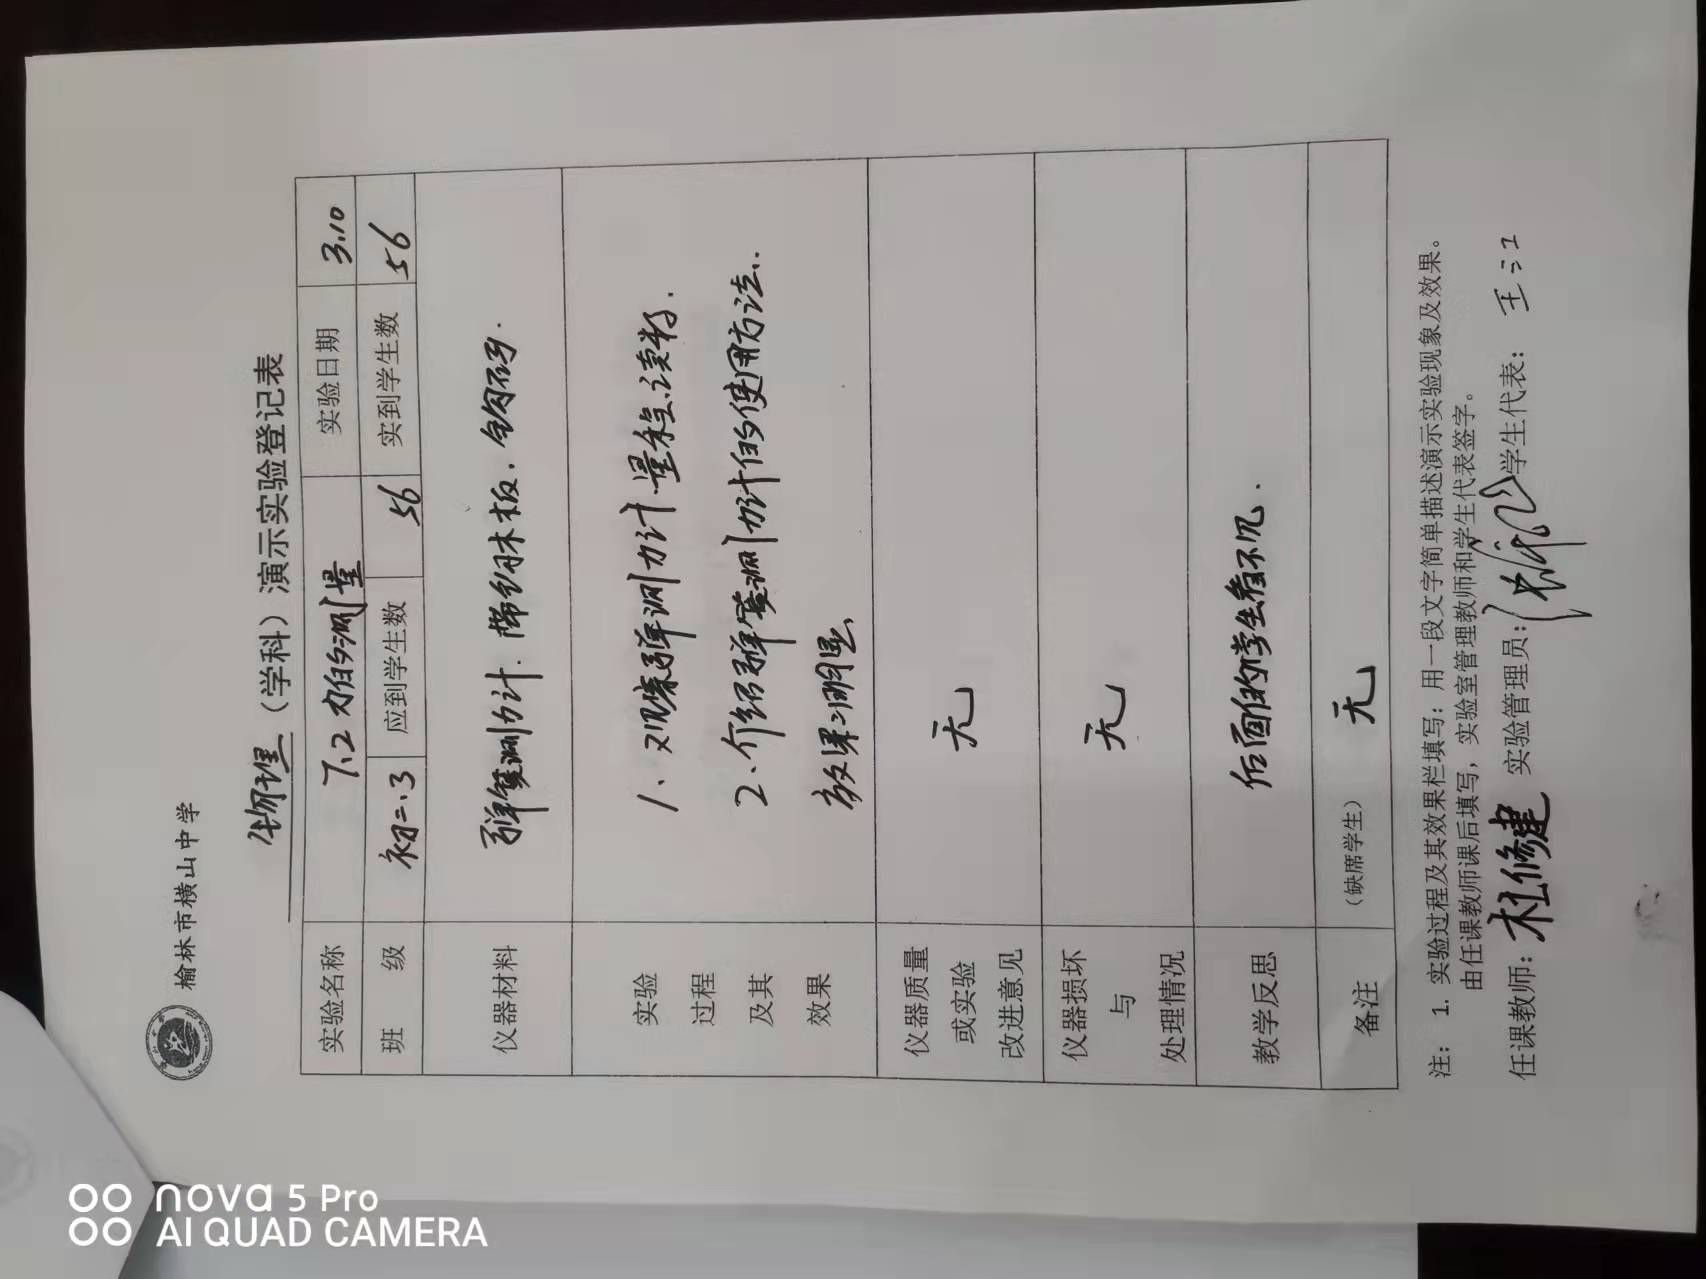 榆林市横山中学
物理（学科）演示实验登记表
实验名称 7.2力的测量 实验日期 3.10
班 级 初二.3 应到学生数 56 实到学生数 56
仪器材料 弹簧测力计. 木板. 钩码.
实验
过程
及其
效果
1、观察弹测力计量程、读数.
2、介绍弹簧测力计的使用方法.
效果:明显
仪器质量
或实验
改进意见
无
仪器损坏
与
处理情况
无
教学反思 后面的学生看不见.
备注 （缺席学生） 无
注： 1. 实验过程及其效果栏填写：用一段文字简单描述演示实验现象及效果。
由任课教师课后填写，实验室管理教师和学生代表签字。
任课教师：杜修建 实验管理员： 学生代表：
nova 5 Pro
AI QUAD CAMERA